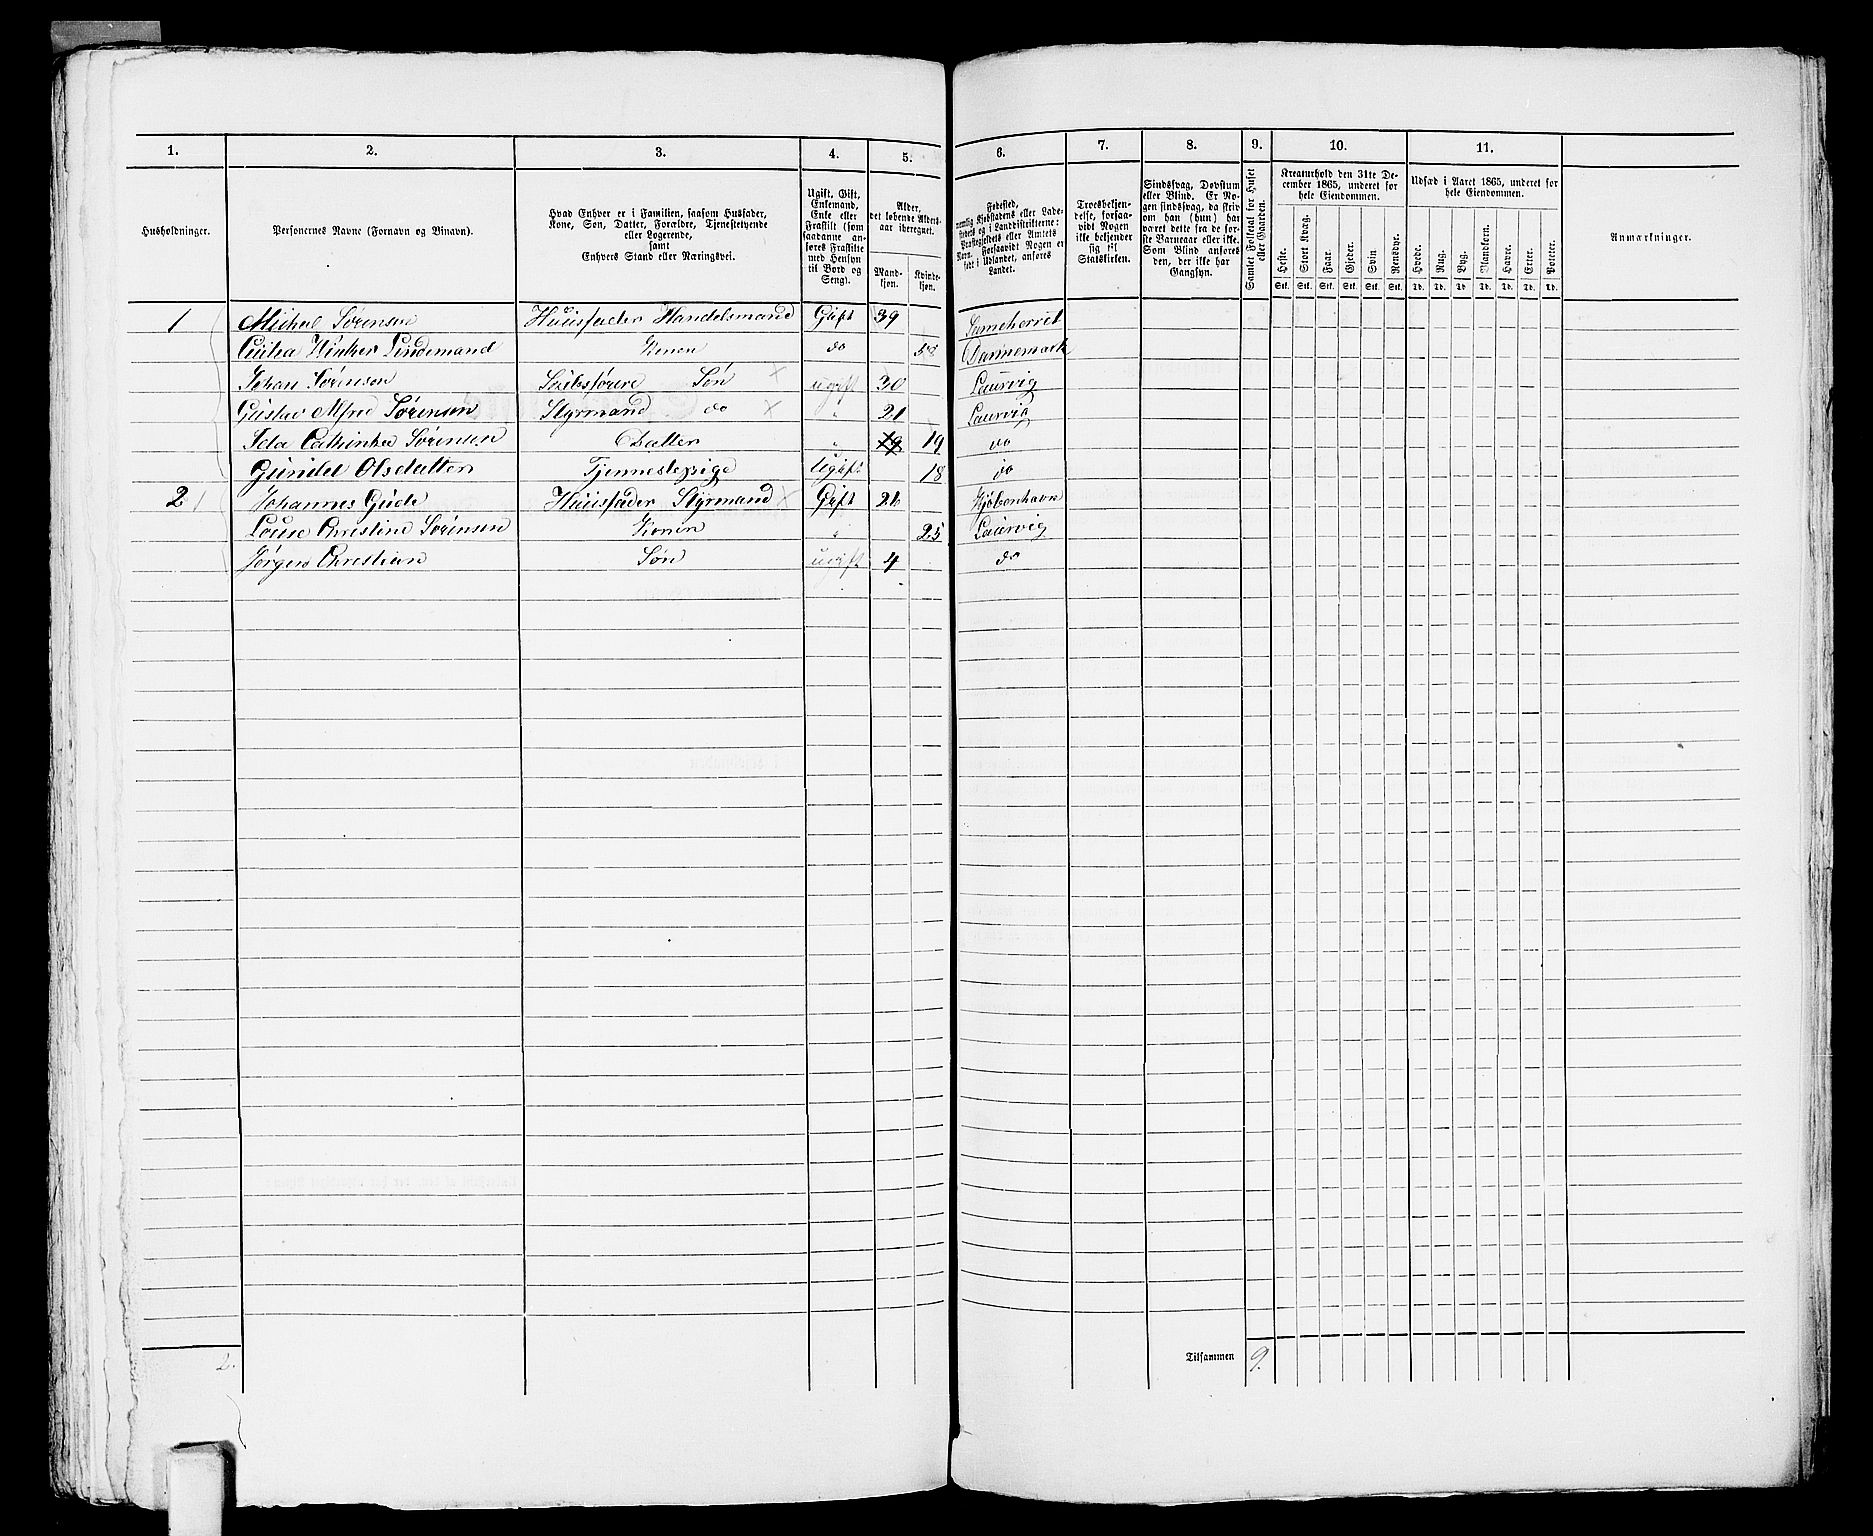 1. 2. 3. 4. 5. 6. 7. 8. 9. 10. 11.
Husholdninger.
Personernes Navne (Fornavn og Binavn).
Hvad Enhver er i Familien, saasom Husfader,
Kone, Søn, Datter, Forældre, Tjenestetyende
eller Logerende,
samt
Enhvers Stand eller Næringsvei.
Ugift, Gift,
Enkemand,
Enke eller
Fraskilt (som
saadanne an-
føres Fraskilte
med Hensyn
til Bord og
Seng).
Alder,
det løbende Alders-
aar iberegnet.
Mand-
kjøn.
Kvinde-
kjøn.
Fødested,
nemlig Kjøbstadens eller Lade-
stedets og i Landdistrikterne:
Præstegjeldets eller Amtets
Navn. Forsaavidt Nogen er
født i Udlandet, anføres
Landet.
Troesbekjen-
delse, forsaa-
vidt Nogen
ikke bekjender
sig til
Statskirken.
Sindssvag, Døvstum
eller Blind. Er No-
gen sindssvag, da skriv
om han (hun) har
været dette fra de før-
ste Barneaar eller ikke.
Som Blind anføres
den, der ikke har
Gangsyn.
Samlet Folketal for Huset
eller Gaarden.
Kreaturhold den 31te De-
cember 1865, underet for
hele Eiendommen.
Heste. Stort Kvæg. Faar. Gjeder. Svin Rensdyr.
Stk. Stk. Stk. Stk. Stk. Stk.
Udsæd i Aaret 1865, underet for
hele Eiendommen.
Hvede. Rug. Byg. Blandkorn. Havre. Erter. Poteter.
Td. Td. Td. Td. Td. Td. Td.
Anmærkninger.
1 Michael Sørensen Huusfader Handelsmand Gift 39
Lindemand Konen do 58 Dannemark
Johan Sørensen Søn ugift 30 Laurvig
Gustav Alfred Sørensen Styrmand do " 21 Laurvig
Ida Cathinka Sørensen Datter " 19 19 do
Gunild Olsdatter Tjennestepige Ugift 18 do
2 Johannes Gude Huusfader Styrmand Gift 26 Kjøbenhavn
Louise Christine Sørensen Konen " 25 Laurvig
Jørgen Christian Søn ugift 4 do
2. Tilsammen 9.